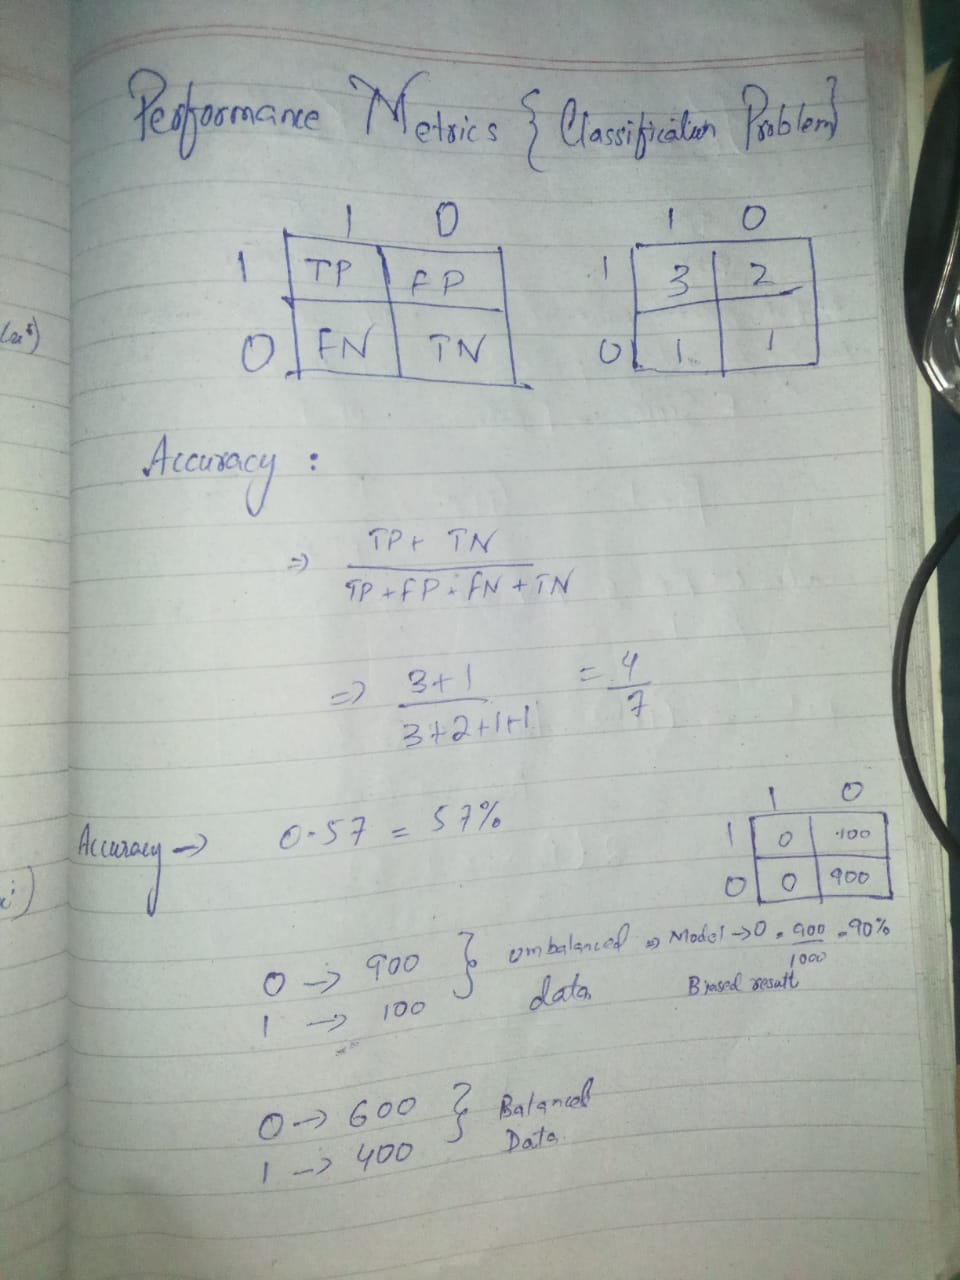 Performance Metrics { Classification Problem}
1 0
1 TP FP
0 FN TN
1 0
1 3 2
0 1 1
Accuracy :
=> TP + TN
TP + FP + FN + TN
=> 3+1 = 4
3+2+1+1 7
Accuracy -> 0.57 = 57%
1 0
1 0 100
0 0 900
0 -> 900 } umbalanced => Model -> 0 = 900 = 90%
1000
1 -> 100 data Biased result
0 -> 600 } Balanced
1 -> 400 Data